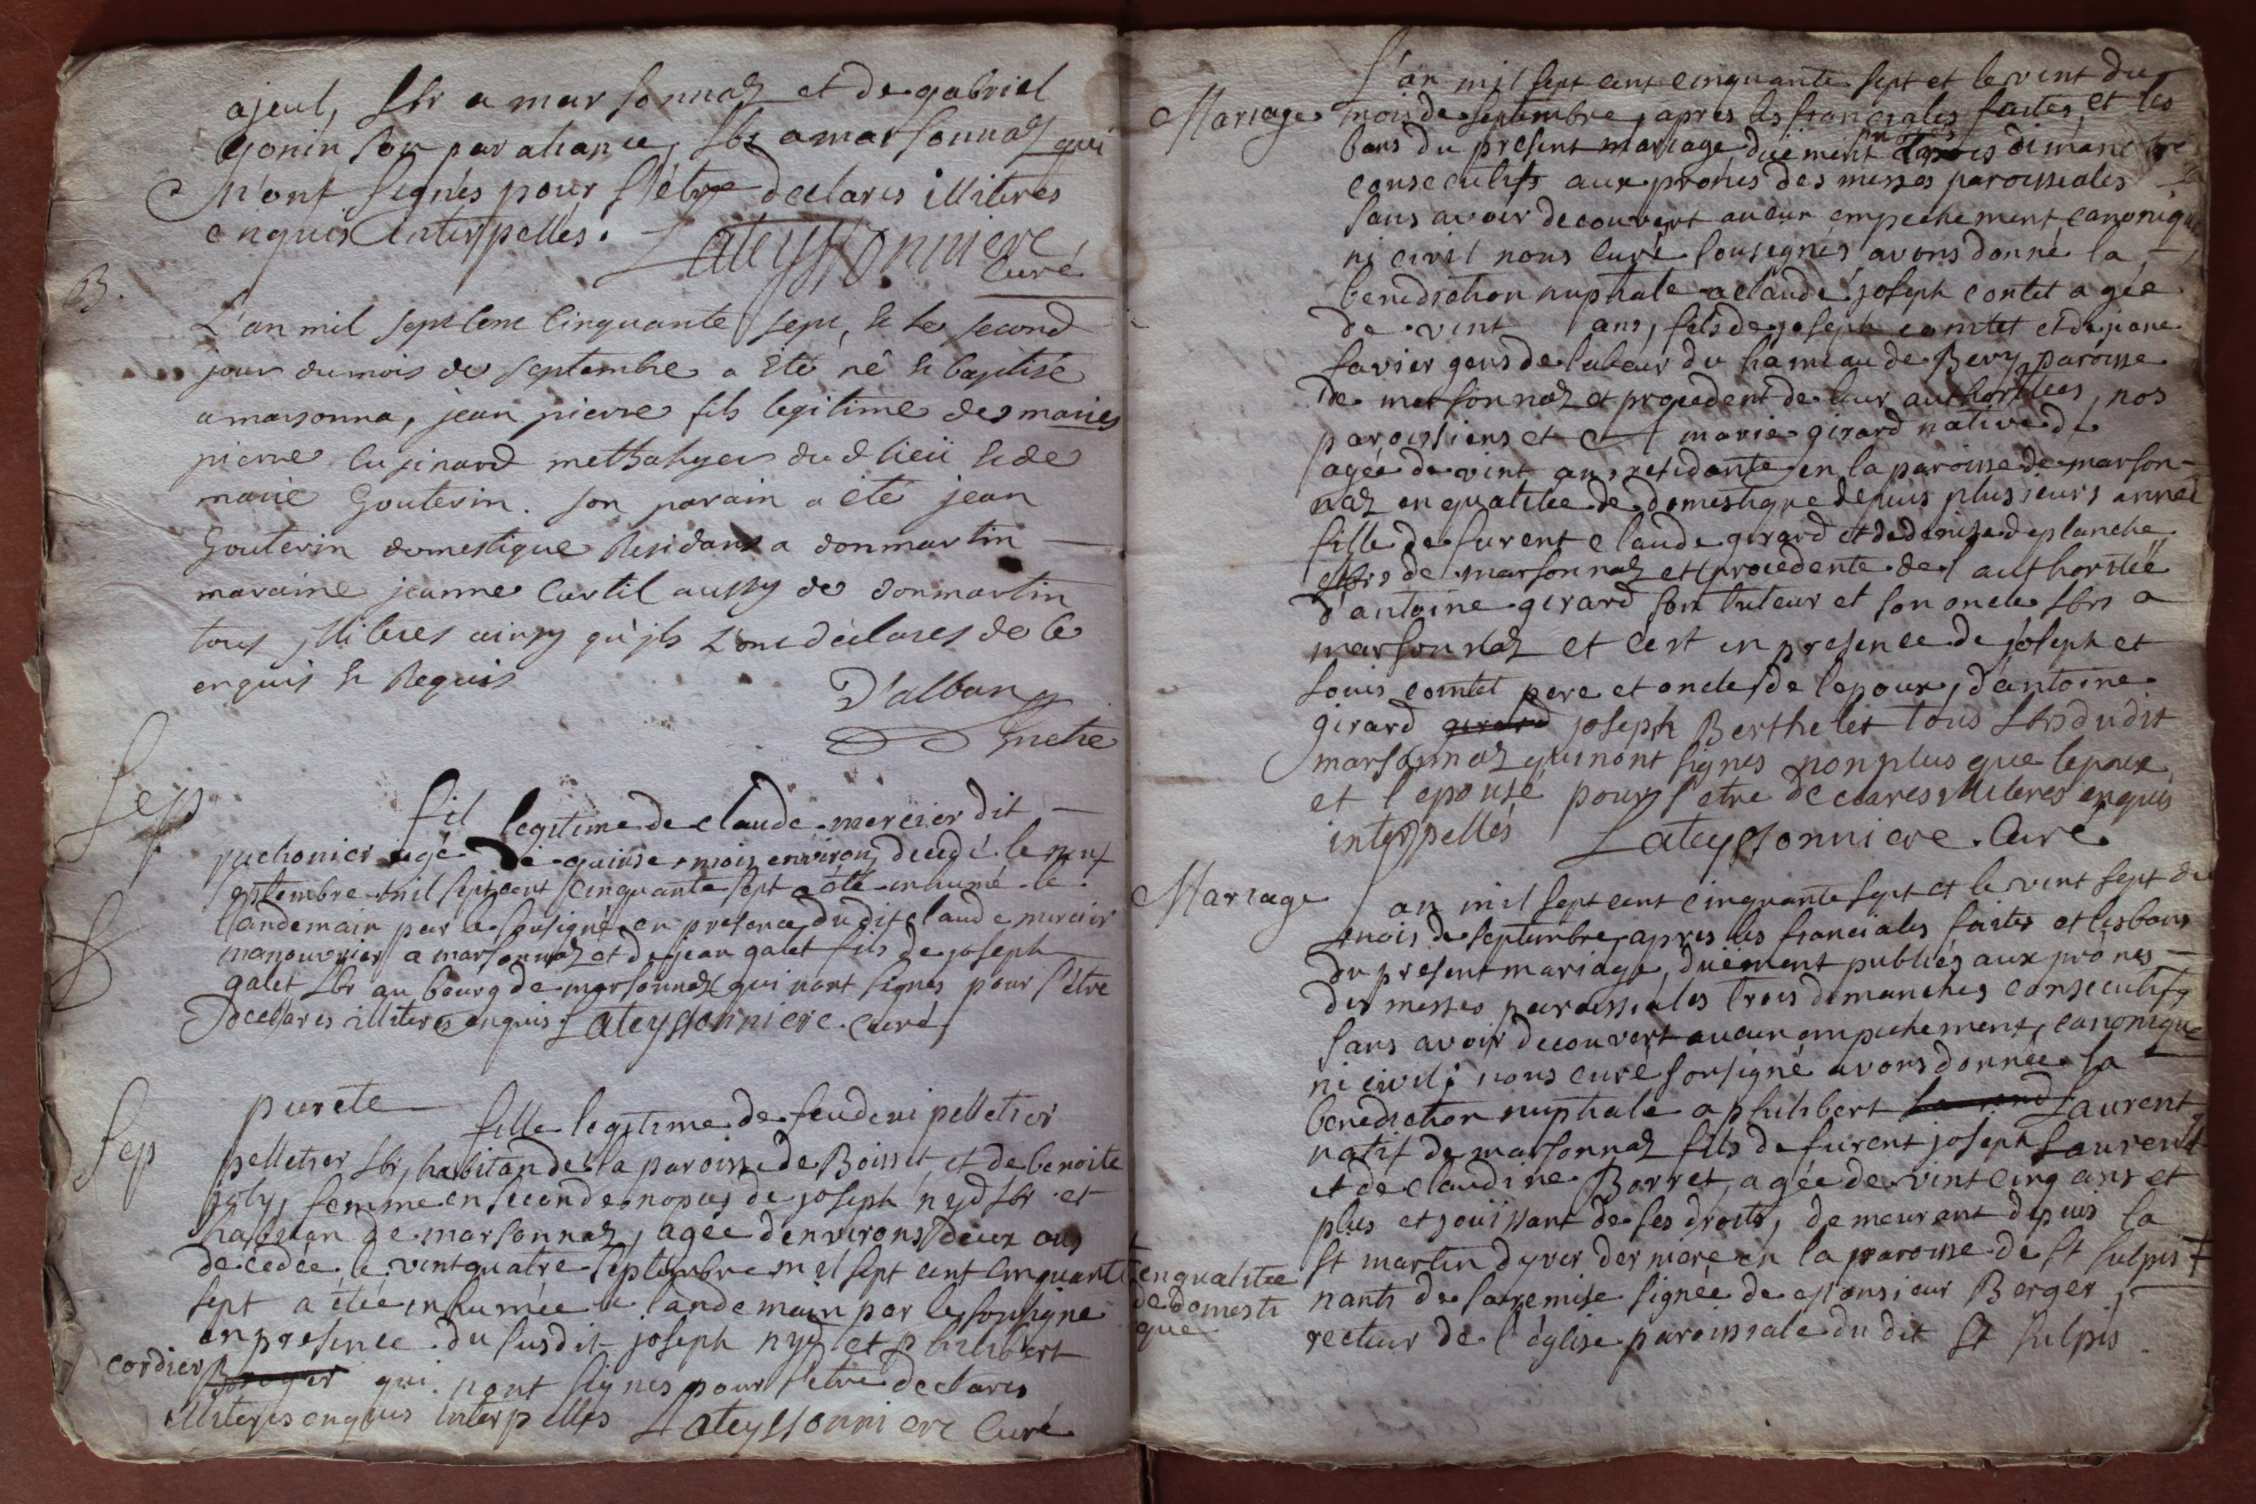 ajeul, lbr a marsonnaz et de gabriel
gonin son par aliance, lbr a marsonnaz qui
n'ont signés pour s'être declarés illiteres
enquis interpellés. Lateyssonniere
curé
B.
L'an mil sept cent cinquante sept, & le second
jour du mois de septembre a eté né & baptisé
a marsonna, jean pierre fils legitime des mariés
pierre cusinard methahyer du d lieü & de
marie Gouterin. son parain a eté jean
Gouterin domestique residant a donmartin
maraine jeanne Curtil aussy de donmartin
tous jlliteres ainsy qu'jls l'ont déclares de ce
enquis & requis
D'alban
Sep
fil legitime de claude mercier dit
puchonier agé de quinse mois environ, decedé le neuf
septembre mil sept cent cinquante sept a été inhumé le
landemain par le sousigné en presence du dit claude mercier
manouvrier a marsonnaz et de jean galet fils de joseph
galet lbr au bourg de marsonnaz qui nont signés pour s'etre
declarés illiteres enquis. Lateyssonniere curé
Sep
purete
fille legitime de feu deni pelletier
pelletier lbr, habitan de la paroisse de Boisset, et de benoite
joly, femme en seconde nopces de joseph nyd lbr et
habitan de marsonnaz, agée d'environs deux ans
decedée le vint quatre septembre mil sept cent cinquante
sept a étée inhumée le landemain par le sousigné
en presence du susdit joseph nyd et philibert
cordier qui nont signés pour s'etre declarés
illiteres enquis interpellés Lateyssonniere Curé
L'an mil sept cent cinquante sept et le vint du
Mariage mois de septembre, apres les fianciales faites et les
bans du present mariage duëment dimanche
consecutifs aux prones des messes paroissiales
sans avoir decouvert aucun empechement canonique
ni civil nous curé sousignés avons donné la
benediction nuptiale a claude joseph contet agée
de vint ans, fils de joseph comtet et de jeane
favier gens de labeur du hameau de Bevy paroisse
de marsonnaz et procedent de leur authoritées, nos
paroissiens et marie girard native de
agée de vint ans residante en la paroisse de marson-
naz en qualitée de domestique depuis plusieurs année
fille de furent claude girard et de denise deplanche
lbrs de marsonnaz et procedente de l'authoritée
d'antoine girard son tuteur et son oncle lbrs a
marsonnaz et cest en presence de joseph et
louis comtet pere et oncle de lepoux, d'antoine
girard girard joseph Berthelet tous lbrs dudit
marsonnaz qui nont signes non plus que lepoux
et l'epouse pour s'etre declares illiteres enquis
interpellés Lateyssonniere. Curé
Mariage L'an mil sept cent cinquante sept et le vint sept du
mois de septembre apres les fianciales faites et les bans
du present mariage, duëment publiés aux prônes
des messes paroissiales trois dimanches consecutifs
sans avoir decouvert aucun empechement, canonique
ni civil; nous curé sousigné avons donnée la
benediction nuptiale a philibert Laurent
natif de marsonnaz fils de furent joseph Laurent
et de claudine Borret, agée de vint cinq ans et
plus et jouissant de ses droits, demeurant depuis la
st martin dyver derniere en la paroisse de st sulpis
en qualitée
de domesti
que
nanti de sa remise signée de monsieur Berger
recteur de l'église paroissiale du dit st sulpis